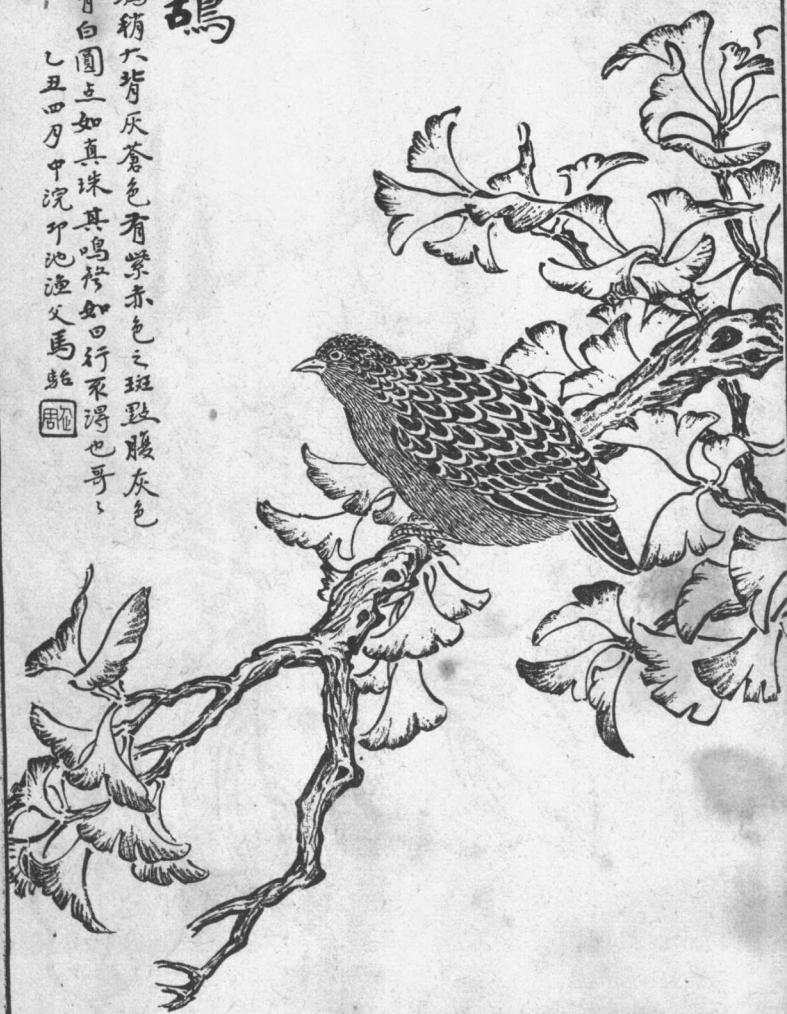 鴣
稍大背灰蒼色有紫赤色之斑點腹灰色
有白圓点如真珠其鳴聲如曰行不得也哥〻
乙丑四月中浣邛池漁父馬駘
企周